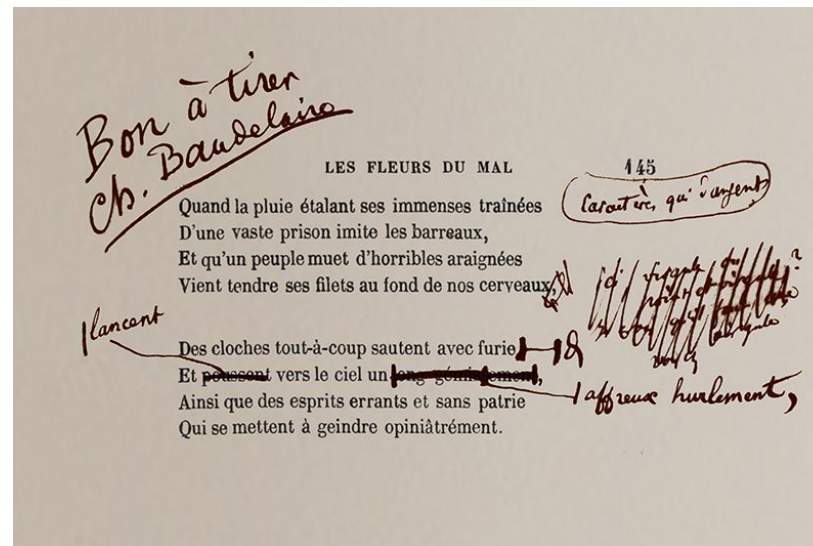 Bon à tirer
Ch. Baudelaire
LES FLEURS DU MAL 145
Caractères qui
Quand la pluie étalant ses immenses traînées
D'une vaste prison imite les barreaux,
Et qu'un peuple muet d'horribles araignées
Vient tendre ses filets au fond de nos cerveaux,
lancent
Des cloches tout-à-coup sautent avec furie
Et poussent vers le ciel un long gémissement,
affreux hurlement,
Ainsi que des esprits errants et sans patrie
Qui se mettent à geindre opiniâtrément.